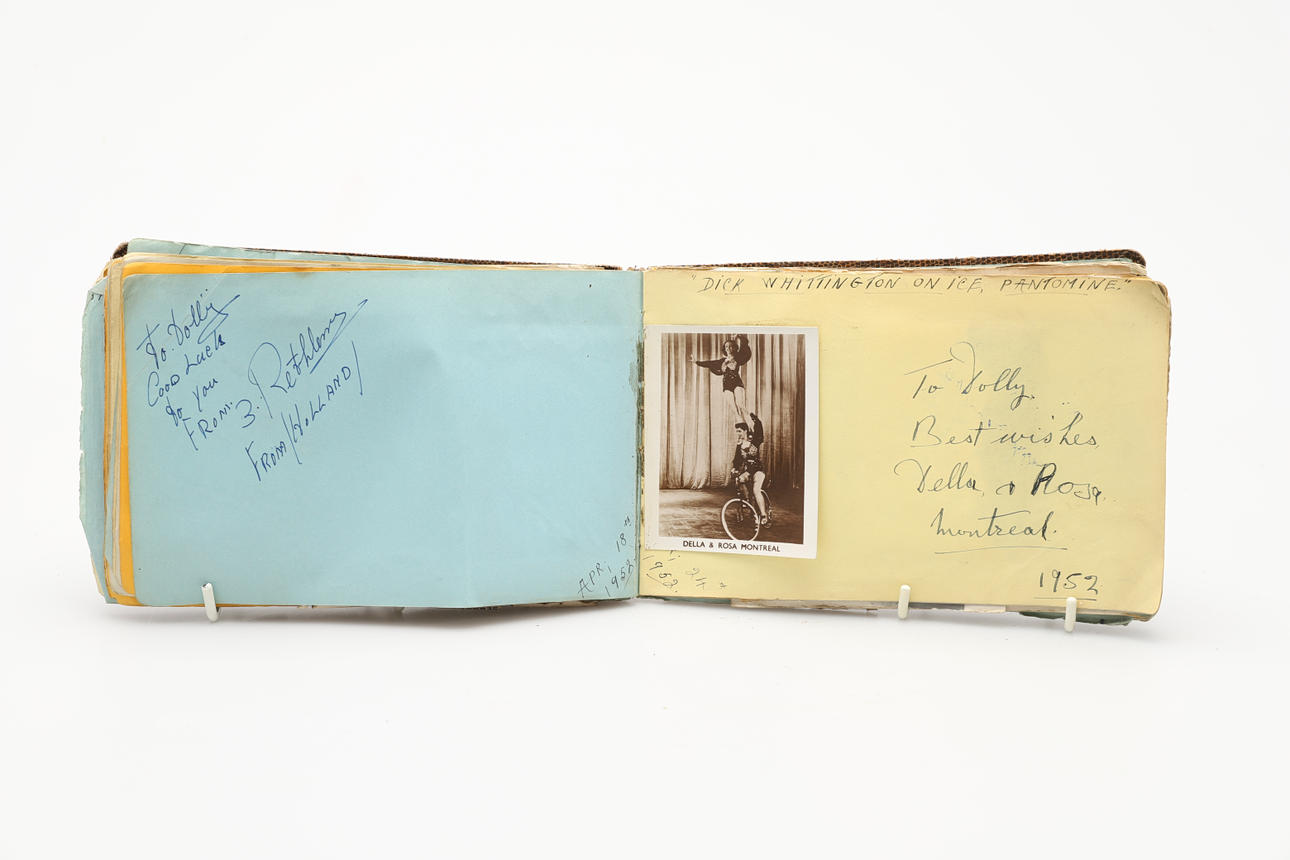 To. Dolly
Good Luck
to you
FROM.
3. Rethlems
FROM/HOLLAND/
APR, 18"
1952
"DICK WHITTINGTON ON ICE, PANTOMINE."
DELLA & ROSA MONTREAL
To Dolly.
Best wishes
Della & Rosa.
Montreal.
1952
1952.